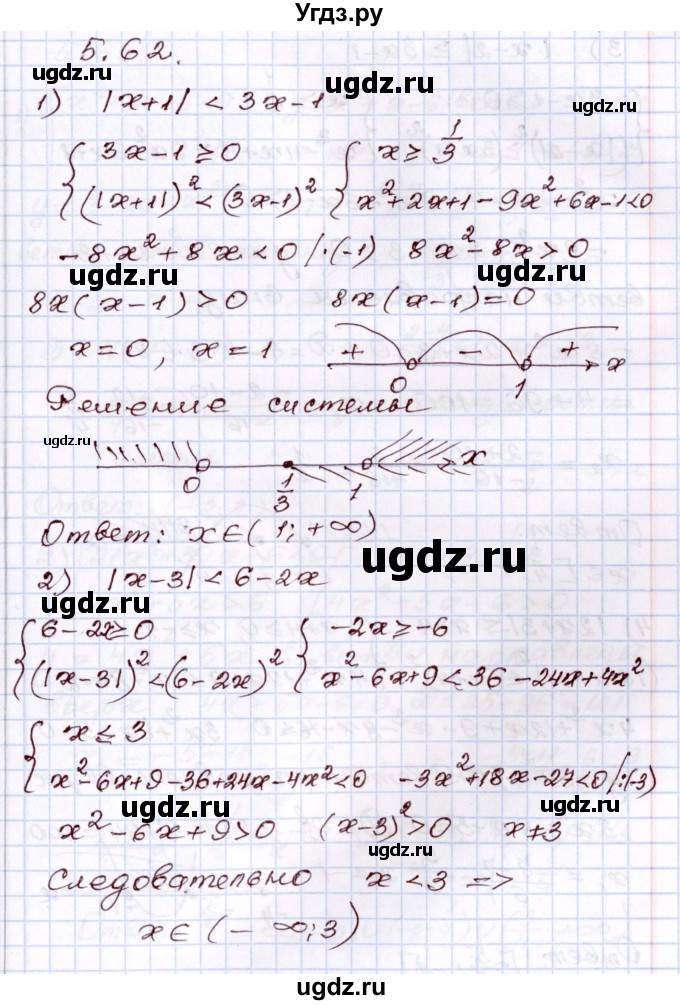 Угдз.ру
5.62.
1) |x+1| < 3x-1
ugdz.ru
ugdz.ru
{ 3x-1 ≥ 0 { x ≥ 1/3
{ (|x+1|)² < (3x-1)² { x²+2x+1-9x²+6x-1<0
-8x²+8x<0 /·(-1) 8x²-8x>0
ugdz.ru
ugdz.ru
8x(x-1)>0 8x(x-1)=0
x=0, x=1 + 0 - 1 + x
ugdz.ru
Решение системы
ugdz.ru
0 1/3 1 x
ugdz.ru
Ответ: x∈(1;+∞)
ugdz.ru
2) |x-3| < 6-2x
ugdz.ru
{ 6-2x≥0 { -2x ≥ -6
{ (|x-3|)² < (6-2x)² { x²-6x+9<36-24x+4x²
ugdz.ru
ugdz.ru
{ x ≤ 3
{ x²-6x+9-36+24x-4x²<0 -3x²+18x-27<0/:(-3)
ugdz.ru
ugdz.ru
x²-6x+9>0 (x-3)²>0 x≠3
ugdz.ru
Следовательно x<3 =>
ugdz.ru
x∈(-∞;3)
ugdz.ru
ugdz.ru